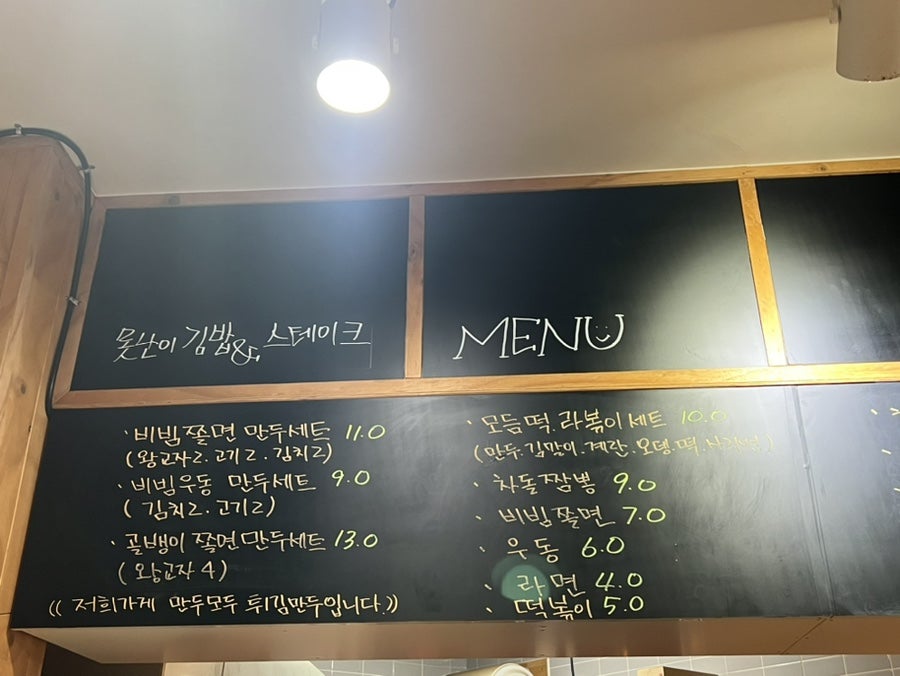 못난이 김밥 & 스테이크
MENU
· 비빔쫄면 만두세트 11.0
(왕교자2. 고기2. 김치2)
· 비빔우동 만두세트 9.0
(김치2. 고기2)
· 골뱅이 쫄면만두세트 13.0
(왕교자4)
(( 저희가게 만두모두 튀김만두입니다.))
· 모듬떡.라볶이세트 10.0
(만두.김말이.계란.오뎅.떡.
· 차돌짬뽕 9.0
· 비빔쫄면 7.0
· 우동 6.0
· 라면 4.0
· 떡볶이 5.0